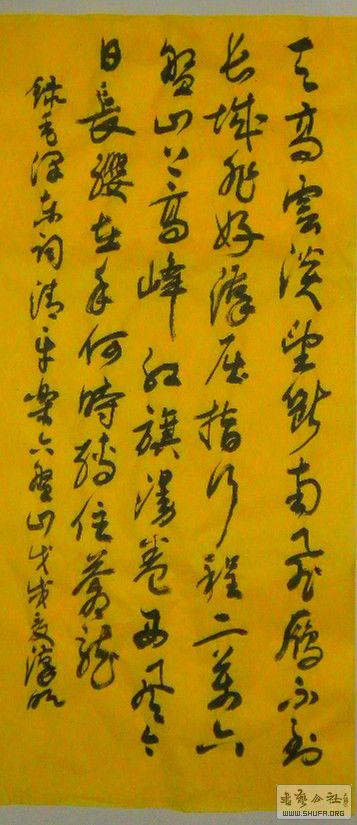 天高雲淡望斷南飛雁不到
長城非好漢屈指行程二萬六
盤山上高峰紅旗漫卷西風今
日長纓在手何時縛住蒼龍
錄毛澤東詞清平樂六盤山戊戌夏漢明
WWW.SHUFA.ORG